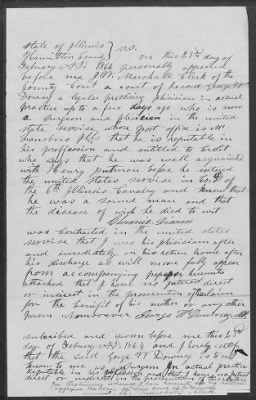 State of Illinois } S.S.
Hamilton County } on this 23rd day of
Febuary A.D. 1864 personaly appeared
before me J.W. Marshall Clerk of the
County Court a court of Record George W
Downey a regular practicing phisician in actual
practice up to a few days ago who is now
a Surgeon and phisician in the united
state service whose post office is Mc
Leansboro Ills that he is reputable in
his proffession and intitled to Credit
who says that he was well acquainted
with Henry before he entered
the united States service in Co.
of the 6th Illinois Cavalry and know that
he was a sound man and that
the disease of wich he died to wit
Chronic Diarrea
was contracted in the united states
service that I was his phisician after
and immediately on his return home after
his discharge as will more fully appear
from accompanying papers hereunto
attached that I have no interest direct
or indirect in the prosecution of this claim
for the benifit of his mother or any other
person whomsoever George W Downey M.D.
subscribed and sworn before me this 23rd
day of Febuary A.D. 1864 and I hereby certify
that the said George W Downey is to me
known to me Surgeon in actual practice
reputable in his profession and that I have no interest
direct or indirect in the prosecution of this claim